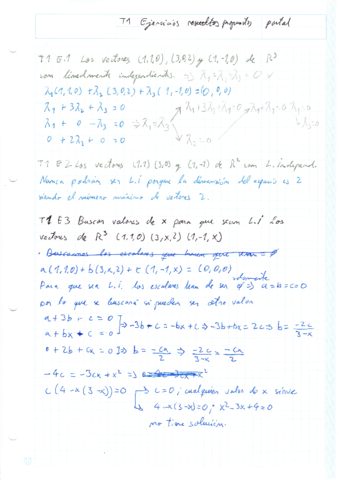 T1 Ejercicios resueltos propuestos portal
T1 E.1 Los vectores (1,1,0), (3,0,2) y (1,-1,0) de R³
son linealmente independientes. ⇒ λ₁=λ₂=λ₃=0
λ₁(1,1,0) + λ₂(3,0,2) + λ₃(1,-1,0) = (0,0,0)
λ₁ + 3λ₂ + λ₃ = 0
λ₁ + 0 - λ₃ = 0 ⇒ λ₁=λ₃
0 + 2λ₂ + 0 = 0
λ₂=0
T1 E.2 Los vectores (1,1) (3,0) y (1,-1) de R² son L. independ.
Nunca podrán ser L.i porque la dimensión del espacio es 2
siendo el número máximo de vectores 2.
T1 E3 Buscar valores de x para que sean L.i los
vectores de R³ (1,1,0) (3,x,2) (1,-1,x)
a(1,1,0) + b(3,x,2) + c(1,-1,x) = (0,0,0)
Para que sea L.i. los escalares han de ser 0 ⇒ a=b=c=0
por lo que se buscará si pueden ser otro valor
a + 3b + c = 0
a + bx - c = 0
⇒ -3b - c = -bx + c ⇒ -3b + bx = 2c ⇒ b = -2c/3-x
0 + 2b + cx = 0 ⇒ b = -cx/2 ⇒ -2c/3-x = -cx/2
c(4-x(3-x))=0
c=0, cualquier valor de x sirve
4-x(3-x)=0; x²-3x+4=0
no tiene solución.